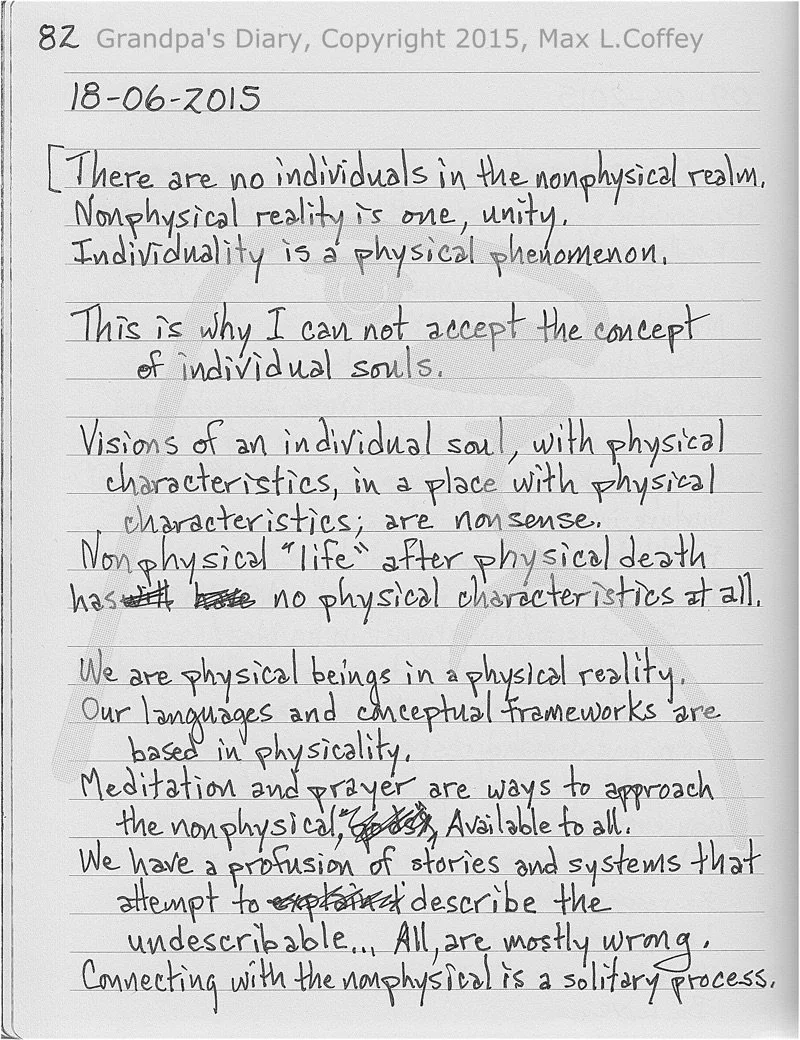 82 Grandpa's Diary, Copyright 2015, Max L.Coffey
18-06-2015
[There are no individuals in the nonphysical realm.
Nonphysical reality is one, unity.
Individuality is a physical phenomenon.
This is why I can not accept the concept
of individual souls.
Visions of an individual soul, with physical
characteristics, in a place with physical
characteristics; are nonsense.
Nonphysical "life" after physical death
has no physical characteristics at all.
We are physical beings in a physical reality.
Our languages and conceptual frameworks are
based in physicality.
Meditation and prayer are ways to approach
the nonphysical, Available to all.
We have a profusion of stories and systems that
attempt to describe the
undescribable... All, are mostly wrong.
Connecting with the nonphysical is a solitary process.